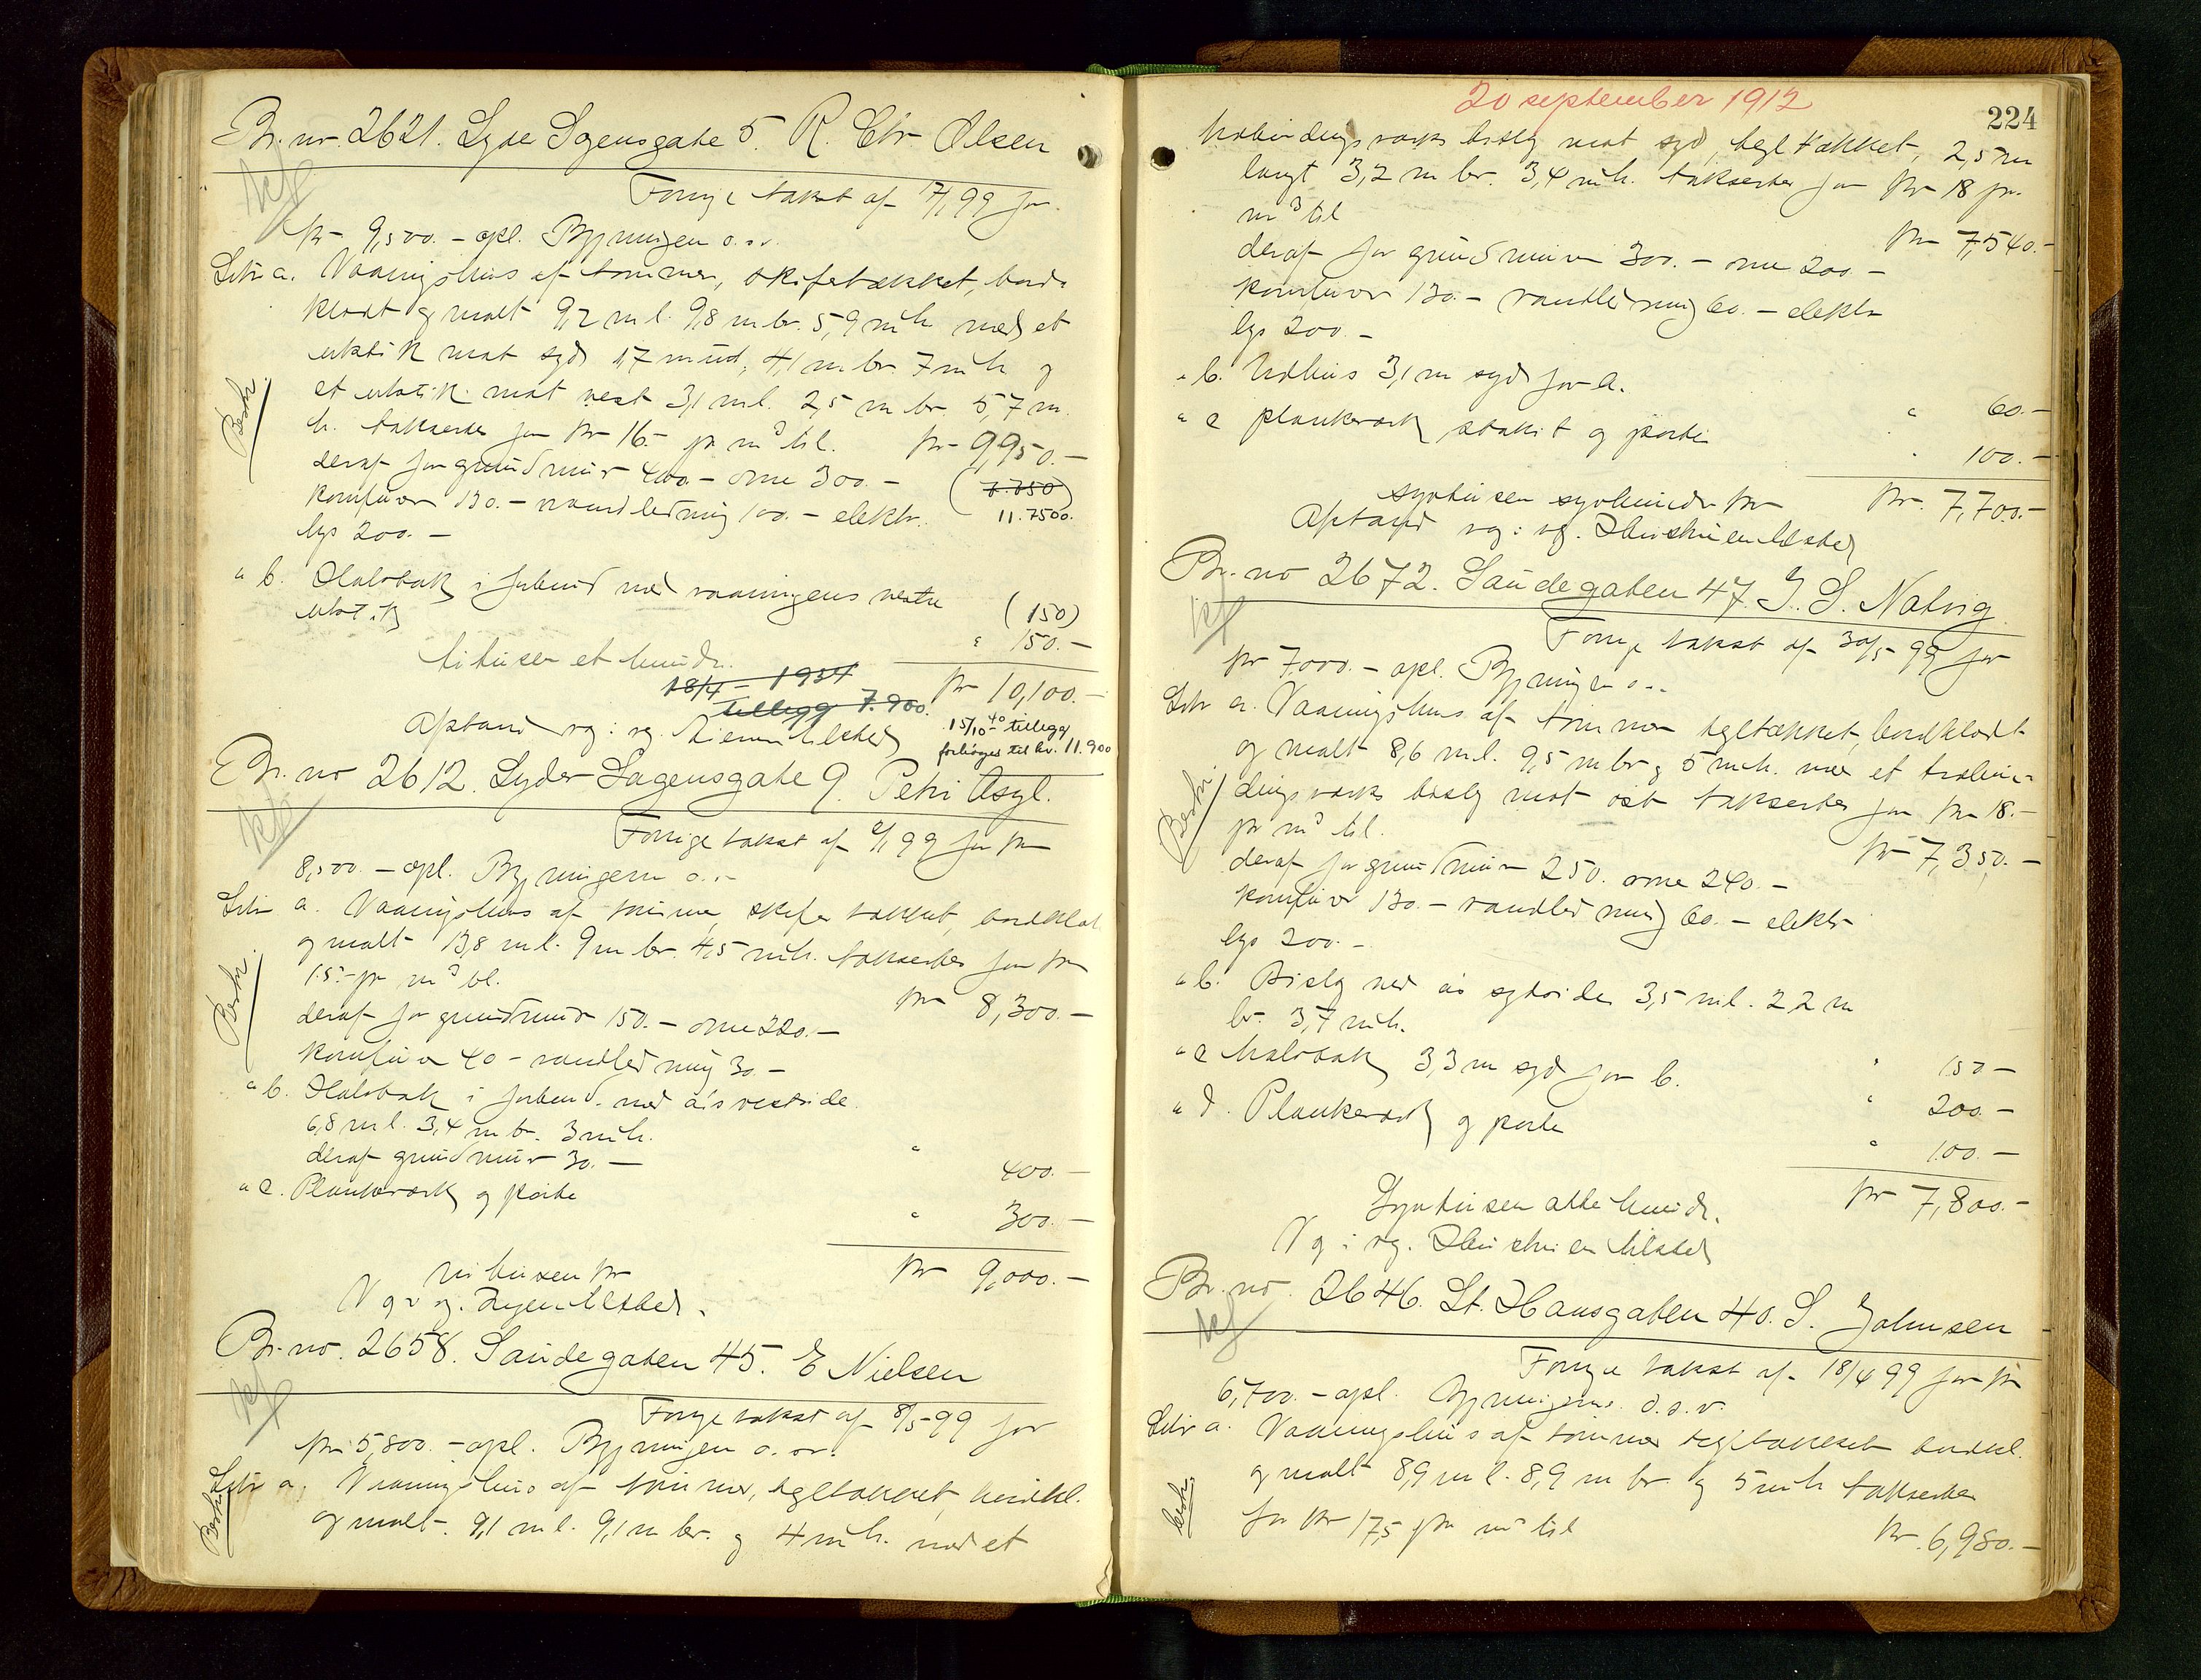 Br. no. 2621. Lyder Sagensgate 5. R. Chr Olsen
Forrige takst af 17/1 99 for
kr 9,500.- opl. Bygningen o.s.v.
Litr a. Vaaningshus af tømmer, skifertækket, bord-
klædt og malt 9,2 m l. 9,8 m br. 5,9 m h. med et
utstik mot syd 1,7 m ud, 4,1 m br. 7 m h og
et utstik mot vest 3,1 m l. 2,5 m br. 5,7 m.
h. takseres for kr 16.- pr m3 til. kr 9,950.-
deraf for grundmur 400.- ovne 300.- (7.750)
komfurer 130.- vandledning 100.- elektr. 11.7500.
lys 200.-
" b. Halvtak i forbind med vaaningens vestre (150)
utstik " 150.-
titusen et hundr. kr 10,100.-
18/4 - 1934
tillegg 7.900.
Aftand vg: vg. Eieren tilsted 15/10 40 tillegg
forhøges til kr. 11.900
Br. no 2612. Lyder Sagensgate 9. Petri Asyl.
Forrige takst af 2/1 99 for kr
8,500.- opl. Bygningerne o.s.v.
Litr a. Vaaningshus af tømmer, skifertækket, bordklæt
og malt 13,8 m l. 9 m br. 4,5 m h. takseres for kr
15.- pr m3 til. kr 8,300.-
deraf for grundmur 150.- ovne 220.-
komfurer 40.- vandledning 30.-
" b. Halvtak i forbend. med a's vestside.
6,8 m l. 3,4 m br. 3 m h.
deraf grundmur 30.- " 400.-
" c. Plankeværk og porte " 300.-
kr 9,000.-
ni tusen kr
Vg: vg. Ingen tilsted.
Br. no. 2658. Saudegaten 45. E Nielsen
Forrige takst af 8/5-99 for
kr 5,800.- opl. Bygningen o.s.v.
Litr a. Vaaningshus af tømmer, tegltækket, bordkl.
og malt. 9,1 m l. 9,1 m br. og 4 m h. med et
Besk.
Besk.
Besk.
20 september 1912
224
utbindingsværks bislag mot syd, tegltækket, 2,5 m
langt 3,2 m br. 3,4 m h. takseres for kr 18 pr.
m3 til kr 7,540.-
deraf for grundmuren 300.- ovne 200.-
komfurer 130.- vandledning 60.- elektr
lys 200.-
" b. Uthus 3,1 m syd for a. " 60.-
" c plankeværk stakit og porte " 100.-
kr. 7,700.-
syvtusen syvhundr kr
Aftand vg: vg. Hustruen tilsted
Br. no 2672. Saudegaten 47. J. S. Natvig
Forrige takst af 30/5-99 for
kr 7,000.- opl. Bygningen o.s.v.
Litr a. Vaaningshus af tømmer tegltækket, bordklædt
og malt 8,6 m l. 9,5 m br og 5 m h. med et utbin-
dingsværks bislag mot øst takseres for kr 18.-
pr m3 til. kr 7,350.-
deraf for grundmur 250. ovne 240.-
komfurer 130.- vandledning 60.- elektr
lys 200.-
" b. Bislag ved a's sydside 3,5 m l. 2,2 m
br. 3,7 m h. " 150.-
" c Halvtak 3,3 m syd for b. " 200.-
" d. Plankeværk og porte " 100.-
kr 7,800.-
Syvtusen otte hundr.
Vg: vg. Hustruen tilsted
Br. no. 2646. St. Hansgaten 40. S. Johnsen
Forrige takst af 18/4 99 for kr
6,700.- opl. Bygningerne o.s.v.
Litr a. Vaaningshus af tømmer tegltækket bordkl.
og malt 8,9 m l. 8,9 m br og 5 m h takseres
for kr 17,5 pr m3 til kr. 6,980.-
Besk.
Besk.